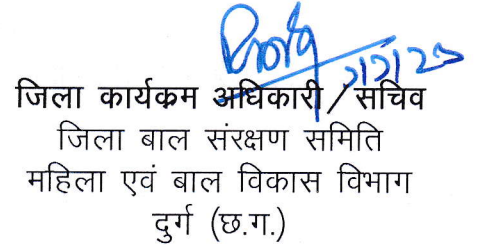 जिला कार्यक्रम अधिकारी / सचिव
जिला बाल संरक्षण समिति
महिला एवं बाल विकास विभाग
दुर्ग (छ.ग.)